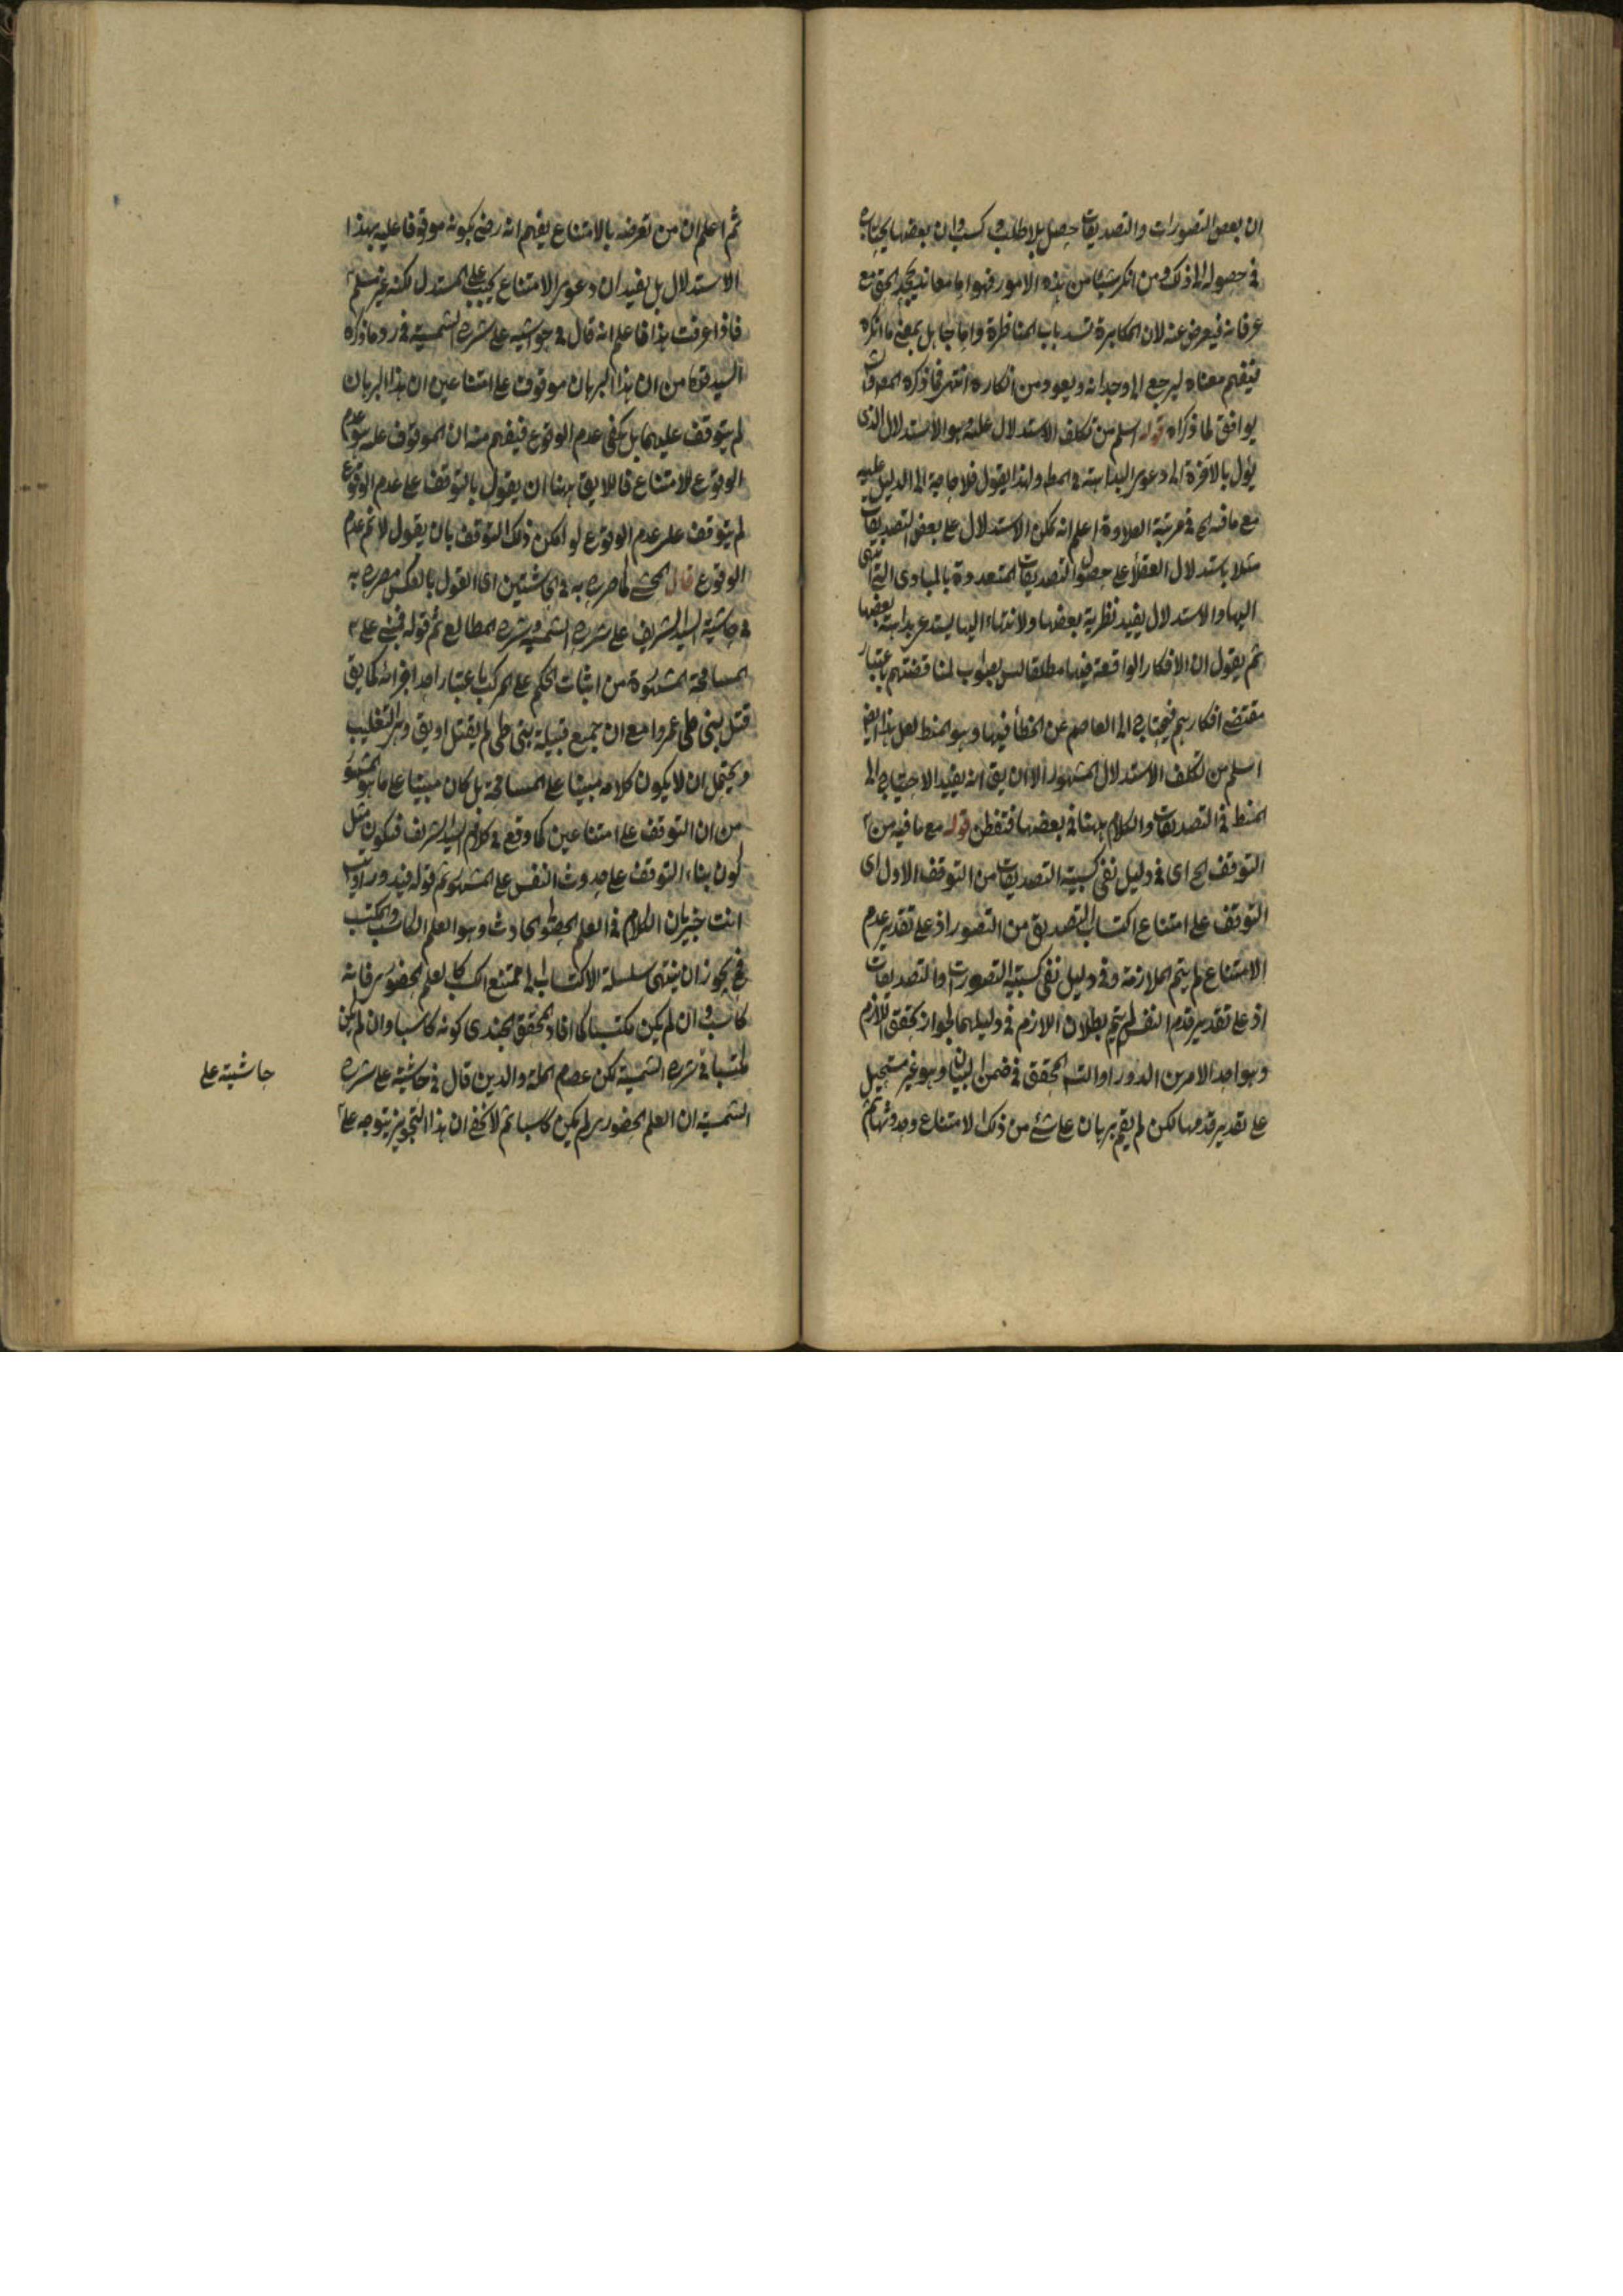 ان بعض التصورات والتصديقات حصل بلا طلب وكسب وان بعضها يحتاج
في حصوله الى ذلك ومن انكر شيئا من هذه الامور فهو اما معاند يجحد الحق مع
عرفانه فيعرض عنه لان المكابرة تسد باب المناظرة واما جاهل بمعنى ما انكره
فيفهم معناه ليرجع الى وجدانه ويعود من انكاره انتهى فما ذكره المص
يوافق لما ذكراه قوله اسلم من تكلف الاستدلال عليه هو الاستدلال الذى
يؤل بالآخرة الى دعوى البداهة في المط ولهذا يقول فلا حاجة الى الدليل عليه
مع ما فيه الخ في مرتبة العلاوة اعلم انه يمكن الاستدلال على بعض التصديقات
مثلا باستدلال العقلاء على حصول التصديقات المتعددة بالمبادى التى انتهى
اليها والاستدلال يفيد نظرية بعضها ولانتهاء اليها يستدعى بداهة بعضها
ثم يقول ان الافكار الواقعة فيها مطلقا ليس بصواب لمناقضتهم باعتبار
مقتضى افكارهم فيحتاج الى العاصم عن الخطأ فيها وهو المنط لعل هذا ايض
اسلم من تكلف الاستدلال المشهور الا ان يق انه يفيد الاحتياج الى
المنط في التصديقات والكلام ههنا في بعضها فتفطن قوله مع ما فيه من
التوقف الخ اى في دليل نفى كسبية التصديقات من التوقف الاول اى
التوقف على امتناع اكتساب التصديق من التصور اذ على تقدير عدم
الامتناع لم يتم الملازمة وفي دليل نفى كسبية التصورات والتصديقات
اذ على تقدير قدم النفس لم يتم بطلان اللازم في دليلهما لجواز تحقق اللازم
وهو احد الامرين الدور او التس المحقق في ضمن البيان وهو غير مستحيل
على تقدير قدمها لكن لم يقم برهان على شئ من ذلك الامتناع وحدوثها ثم
ثم اعلم ان من تعرضه بالامتناع يفهم انه رضى بكونه موقوفا عليه بهذا
الاستدلال بل يفيد ان دعوى الامتناع يجب على المستدل لكنه غير مسلم
فاذا عرفت هذا فاعلم انه قال في حواشيه على شرح الشمسية في رد ما ذكره
السيد من ان هذا البرهان موقوف على امتناعين ان هذا البرهان
لم يتوقف عليهما بل يكفى عدم الوقوع فيفهم منه ان الموقوف عليه هو عدم
الوقوع لا امتناع فاللايق ههنا ان يقول بالتوقف على عدم الوقوع
لم يتوقف على عدم الوقوع لو امكن ذلك التوقف بان يقول لا ثم عدم
الوقوع قال المحشى كما صرح به في الحاشيتين اى القول بالعكس مصرح به
في حاشية السيد الشريف على شرح الشمسية وشرح المطالع ثم قوله فبنى على
المسامحة المشهورة من اثبات الحكم على المركب باعتبار احد اجزائه كما يق
قتل بنى طى عمروا مع ان جميع قبيلة بنى طى لم يقتل او يق وهى التغليب
ويحتمل ان لا يكون كلامه مبينا على المسامحة بل كان مبينا على ما هو المشهور
من ان التوقف على امتناعين كما وقع في كلام السيد الشريف فيكون مثل
كون بناء التوقف على حدوث النفس على المشهور ثم قوله فيدور او يتس
انت خبير بان الكلام في العلم الحصولى الحادث وهو العلم الكاسب والمكتسب
فح يجوز ان ينتهى سلسلة الاكتساب الى ممتنع الكسب كالعلم الحضورى فانه
كاسب وان لم يكن مكتسبا كما افاد المحقق الجندى كونه كاسبا وان لم يكن
مكتسبا في شرح الشمسية لكن عصام الملة والدين قال في حاشيته على شرح
الشمسية ان العلم الحضورى لم يكن كاسبا ثم لا يخفى ان هذا التجويز يتوجه على
حاشيته على